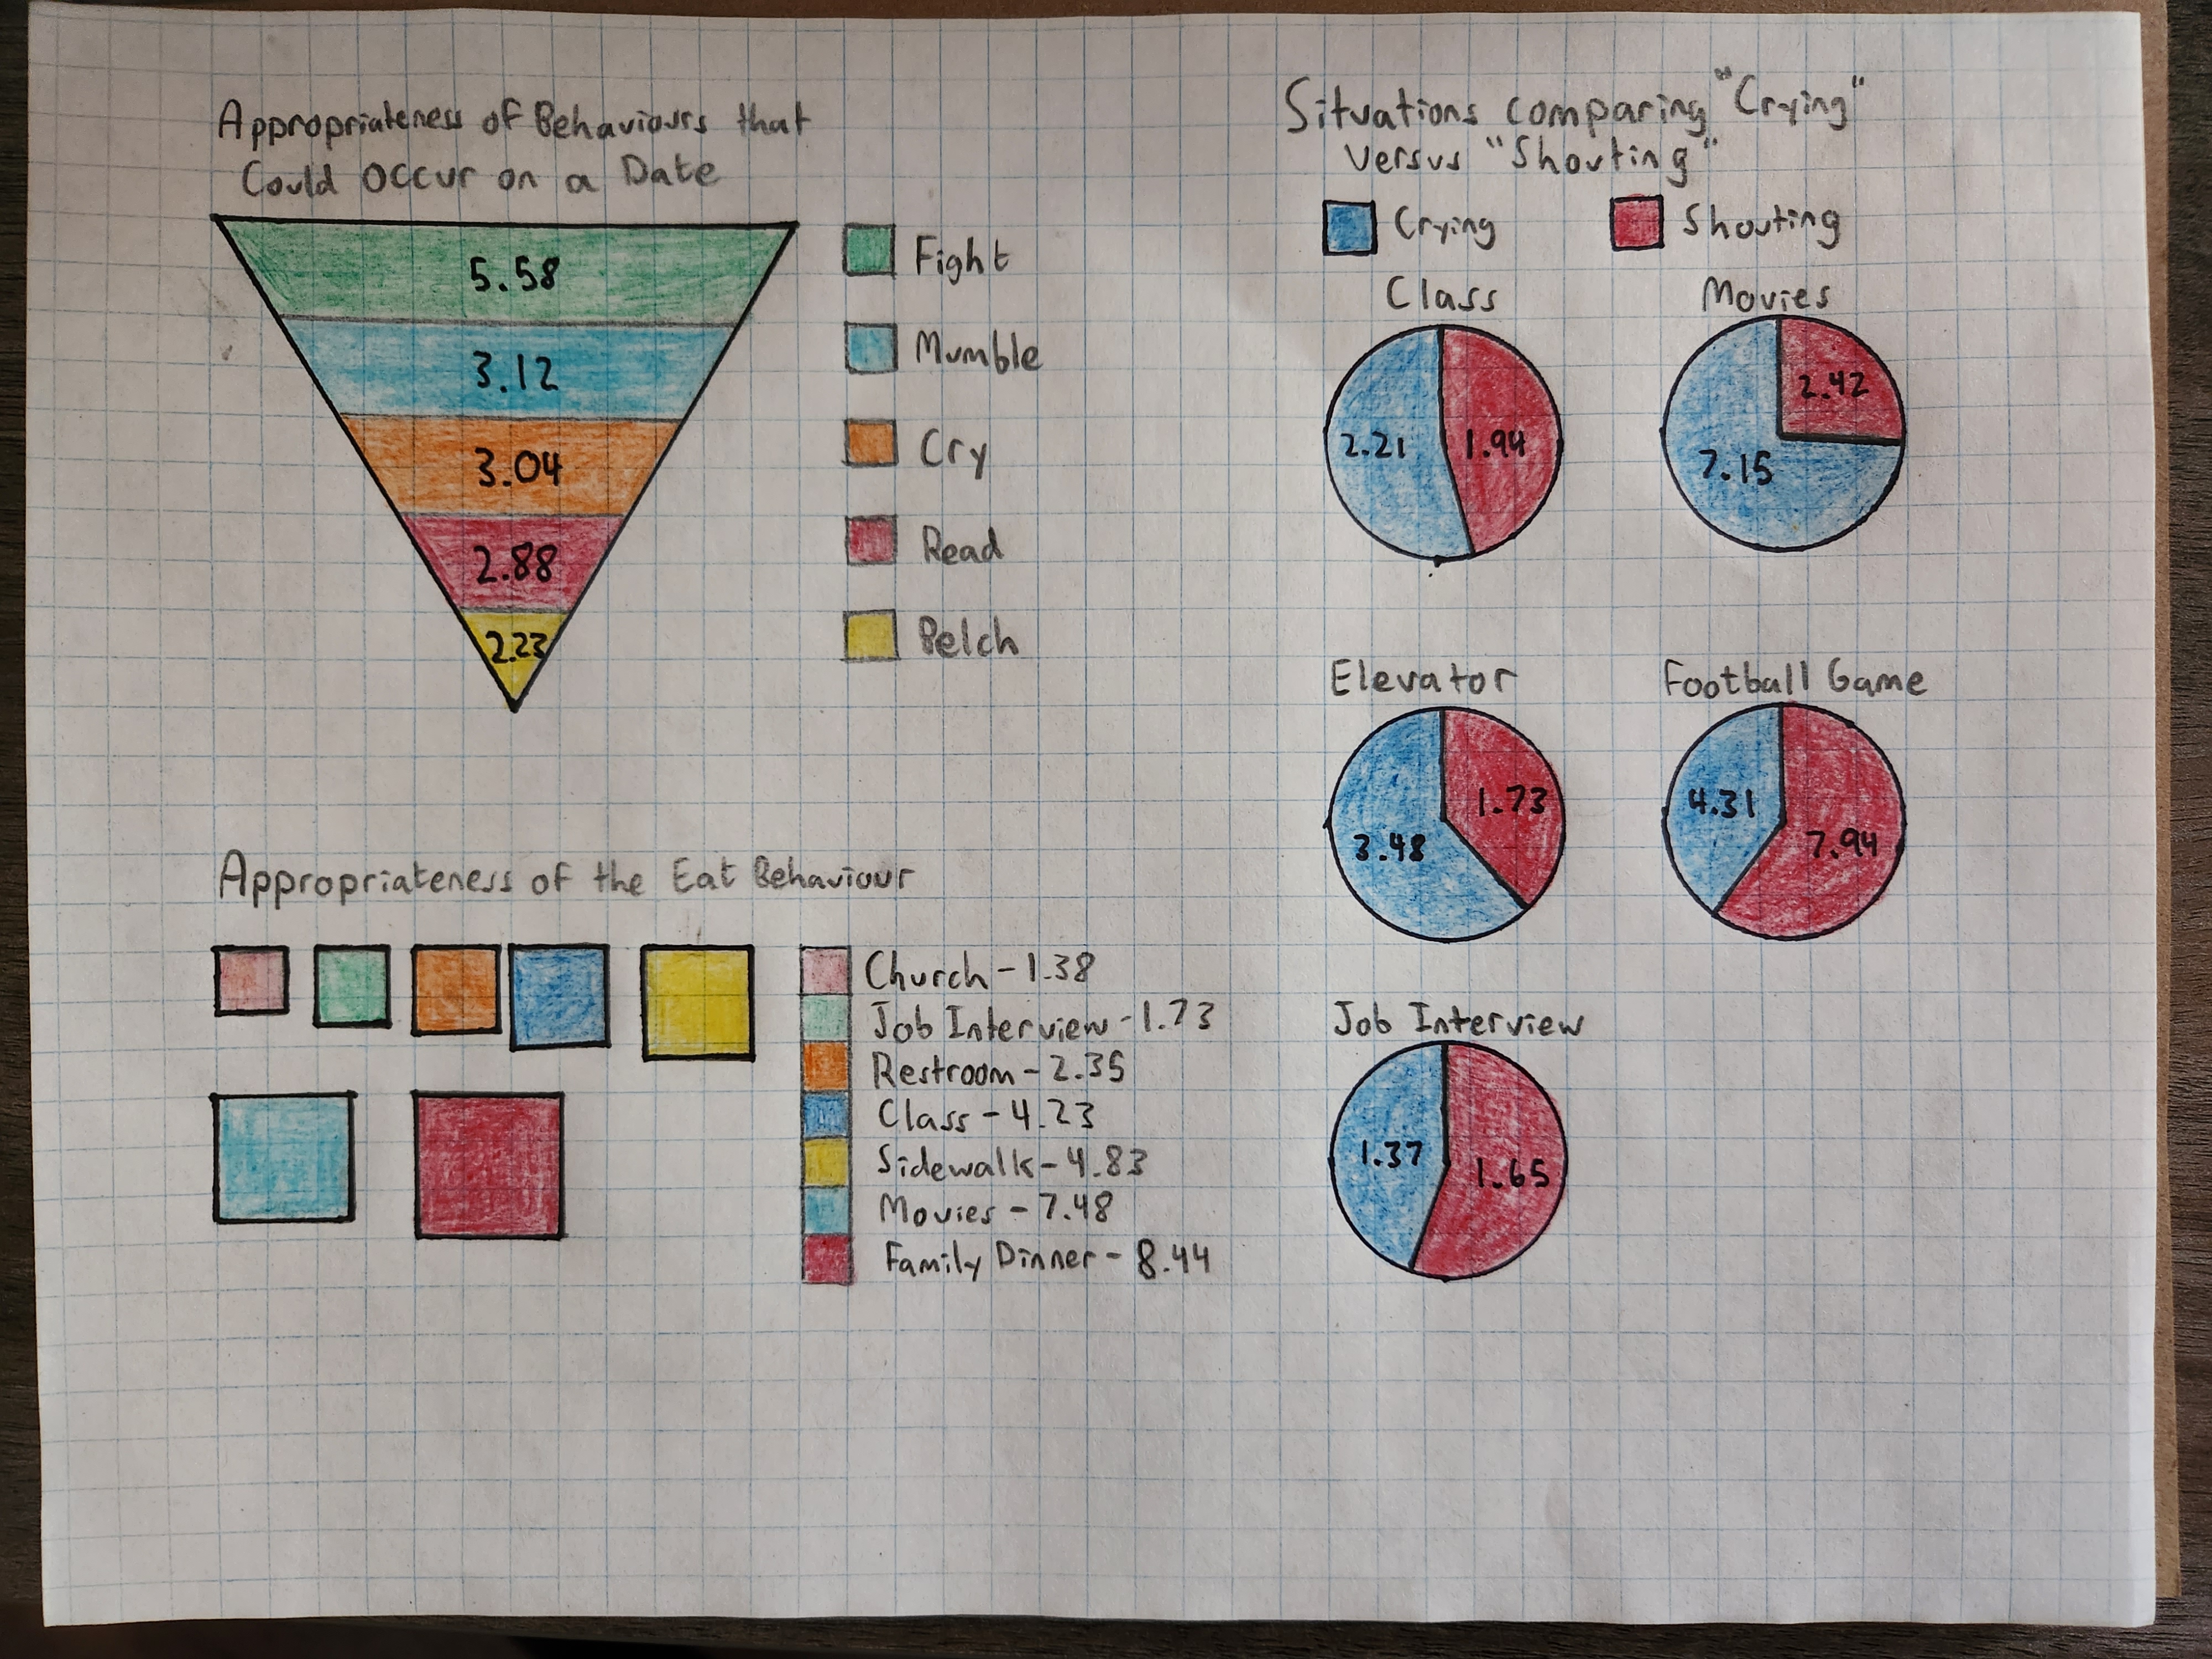 Appropriateness of Behaviours that
Could occur on a Date
5.58
3.12
3.04
2.88
2.23
Fight
Mumble
Cry
Read
Belch
Appropriateness of the Eat Behaviour
Church - 1.38
Job Interview - 1.73
Restroom - 2.35
Class - 4.23
Sidewalk - 4.83
Movies - 7.48
Family Dinner - 8.44
Situations comparing "Crying"
versus "Shouting"
Crying
Shouting
Class
2.21
1.94
Movies
7.15
2.42
Elevator
3.48
1.73
Football Game
4.31
7.94
Job Interview
1.37
1.65